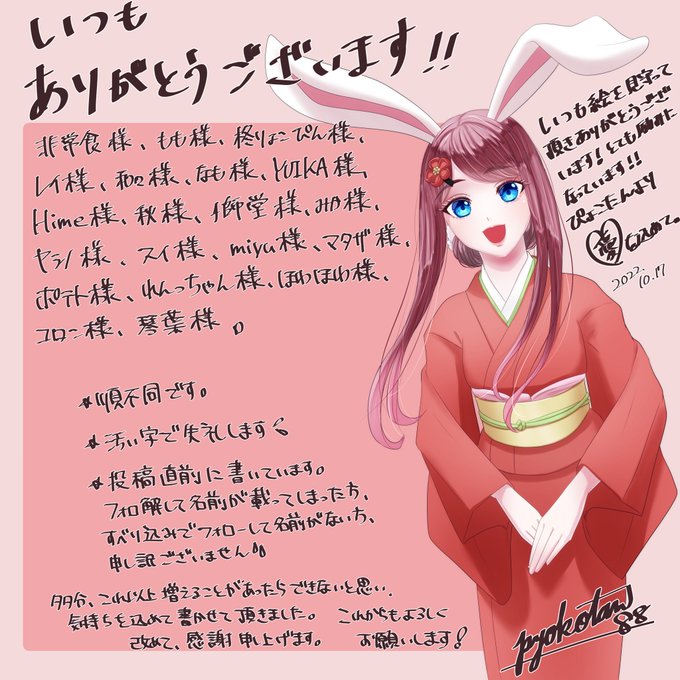 いつも
ありがとうございます!!
非常食様、もも様、柊りょこぴん様、
レイ様、和紅様、なも様、YUIKA様、
Hime様、秋様、御堂様、みか様、
ヤラノ様、スイ様、miyu様、マタザ様、
ポテト様、れんっちゃん様、ほわほわ様、
コロン様、琴葉様。
いつも絵を見守って
頂きありがとうござ
います!とても励みに
なっています!!
ぴょこたんより
愛を込めて。
2022.
10.17
*順不同です。
*汚い字で失礼します
*投稿直前に書いています。
フォロ解して名前が載ってしまった方、
すべり込みでフォローして名前がない方、
申し訳ございません
多分、これ以上増えることがあったらできないと思い、
気持ちを込めて書かせて頂きました。 これからもよろしく
改めて、感謝申し上げます。 お願いします!
pyokotan
88